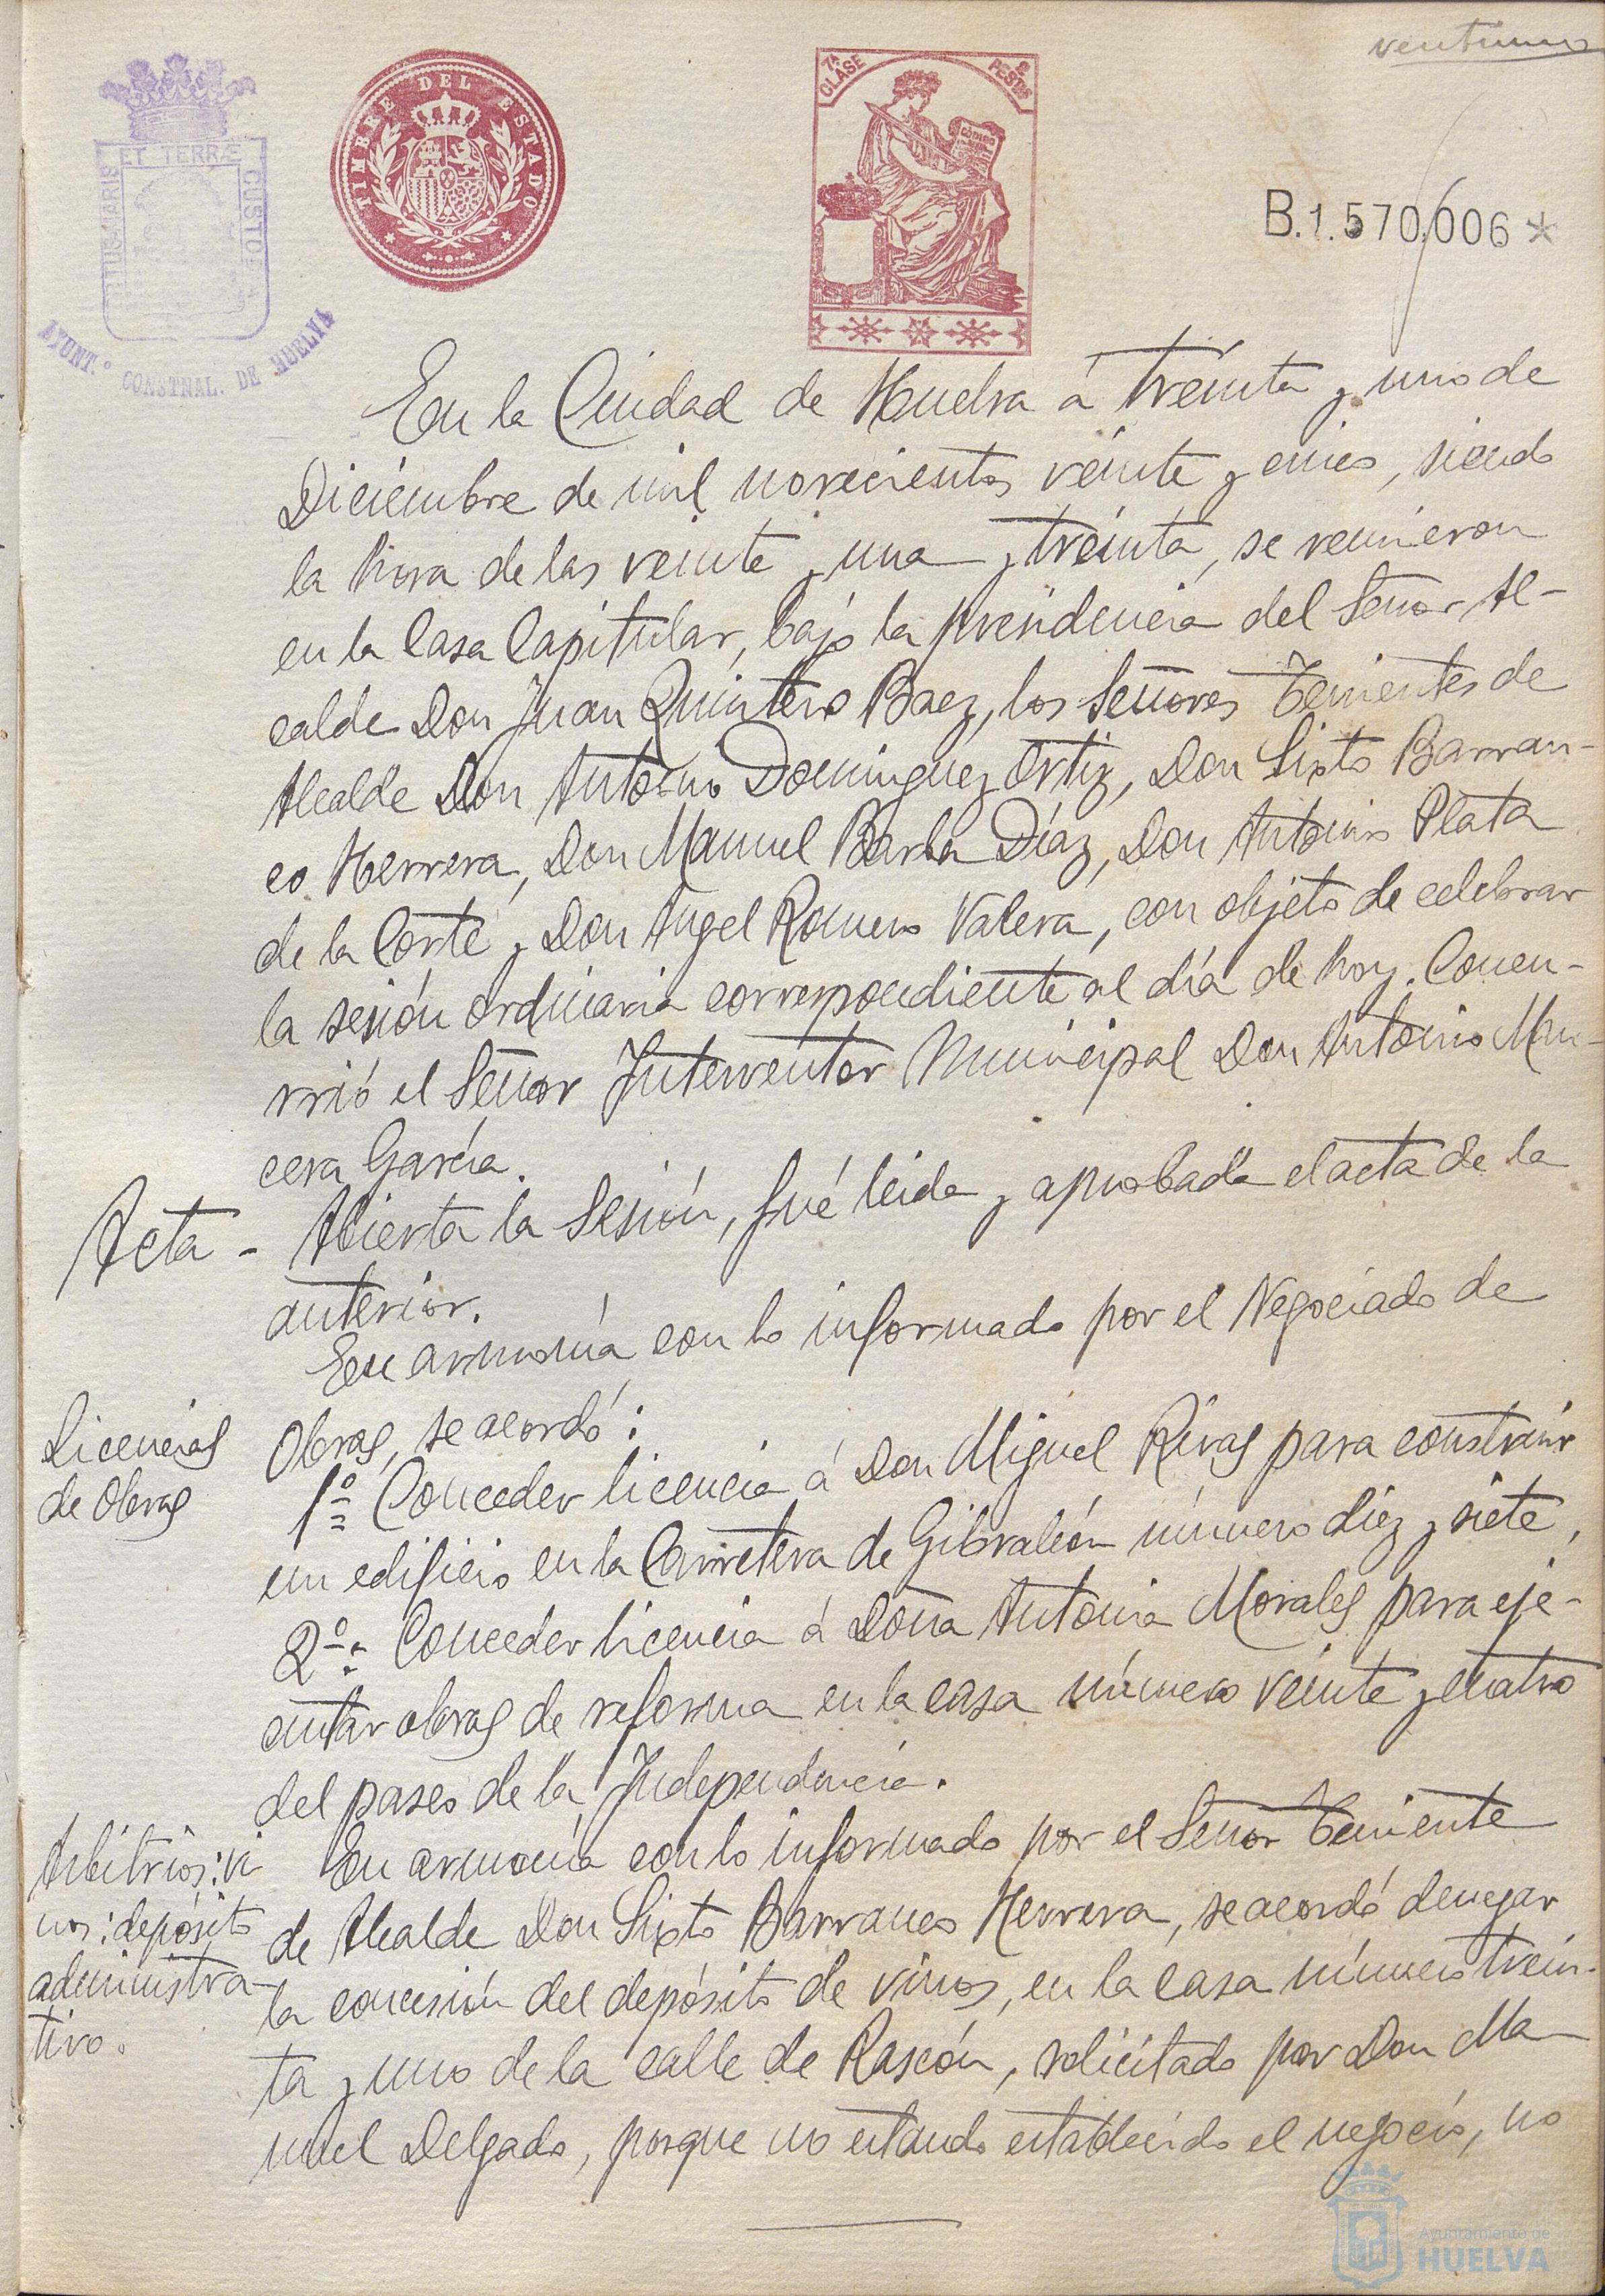 ventiuno
PORTUS MARIS ET TERRÆ CUSTO
AYUNT.º CONSTNAL. DE HUELVA
TIMBRE DEL ESTADO
7ª CLASE
2 PESTAS
CODIGO
B.1.570.006*
En la Ciudad de Huelva á treinta y uno de
Diciembre de mil novecientos veinte y cinco, siendo
la hora de las veinte y una y treinta, se reunieron
en la Casa Capitular, bajo la presidencia del Señor Al-
calde Don Juan Quintero Baez, los Señores Tenientes de
Alcalde Don Antonio Dominguez Ortiz, Don Sixto Barran-
co Herrera, Don Manuel Barba Díaz, Don Antonio Plata
de la Corte y Don Angel Romero Valera, con objeto de celebrar
la sesión ordinaria correspondiente al día de hoy. Concu-
rrió el Señor Interventor Municipal Don Antonio Mun-
cera García.
Acta - Abierta la Sesión, fué leida y aprobada el acta de la
anterior.
En armonía con lo informado por el Negociado de
Licencias
de Obras
Obras, se acordó:
1º Conceder licencia á Don Miguel Rivas para construir
un edificio en la Carretera de Gibraleón número diez y siete,
2º: Conceder licencia á Doña Antonia Morales para eje-
cutar obras de reforma en la casa número veinte y cuatro
del paseo de la Independencia.
Arbitrios: vi
nos: depósito
administra-
tivo.
En armonía con lo informado por el Señor Teniente
de Alcalde Don Sixto Barranco Herrera, se acordó denegar
la concesión del depósito de vinos, en la casa número trein-
ta y uno de la calle de Rascón, solicitado por Don Ma-
nuel Delgado, porque no estando establecido el negocio, no
Ayuntamiento de
HUELVA